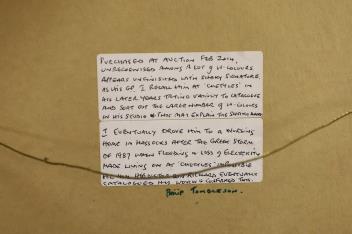 PURCHASED AT AUCTION FEB 2014,
UNRECOGNISED AMONG A LOT OF W-COLOURS.
APPEARS UNFINISHED WITH SHAKY SIGNATURE.
AS HIS GP. I RECALL HIM AT 'CHETTLES' IN
HIS LATER YEARS TRYING VAINLY TO CATALOGUE
AND SORT OUT THE LARGE NUMBER OF W-COLOURS
IN HIS STUDIO THIS MAY EXPLAIN THE
I EVENTUALLY DROVE HIM TO A NURSING
HOME IN HASSOCKS AFTER THE GREAT STORM
OF 1987 WHEN FLOODING & LOSS OF ELECTRICITY
MADE LIVING ON AT 'CHETTLES' IMPOSSIBLE
RICHARD EVENTUALLY
CATALOGUED HIS WORKS & CONFIRMED THIS.
PHILIP TOMBLESON.